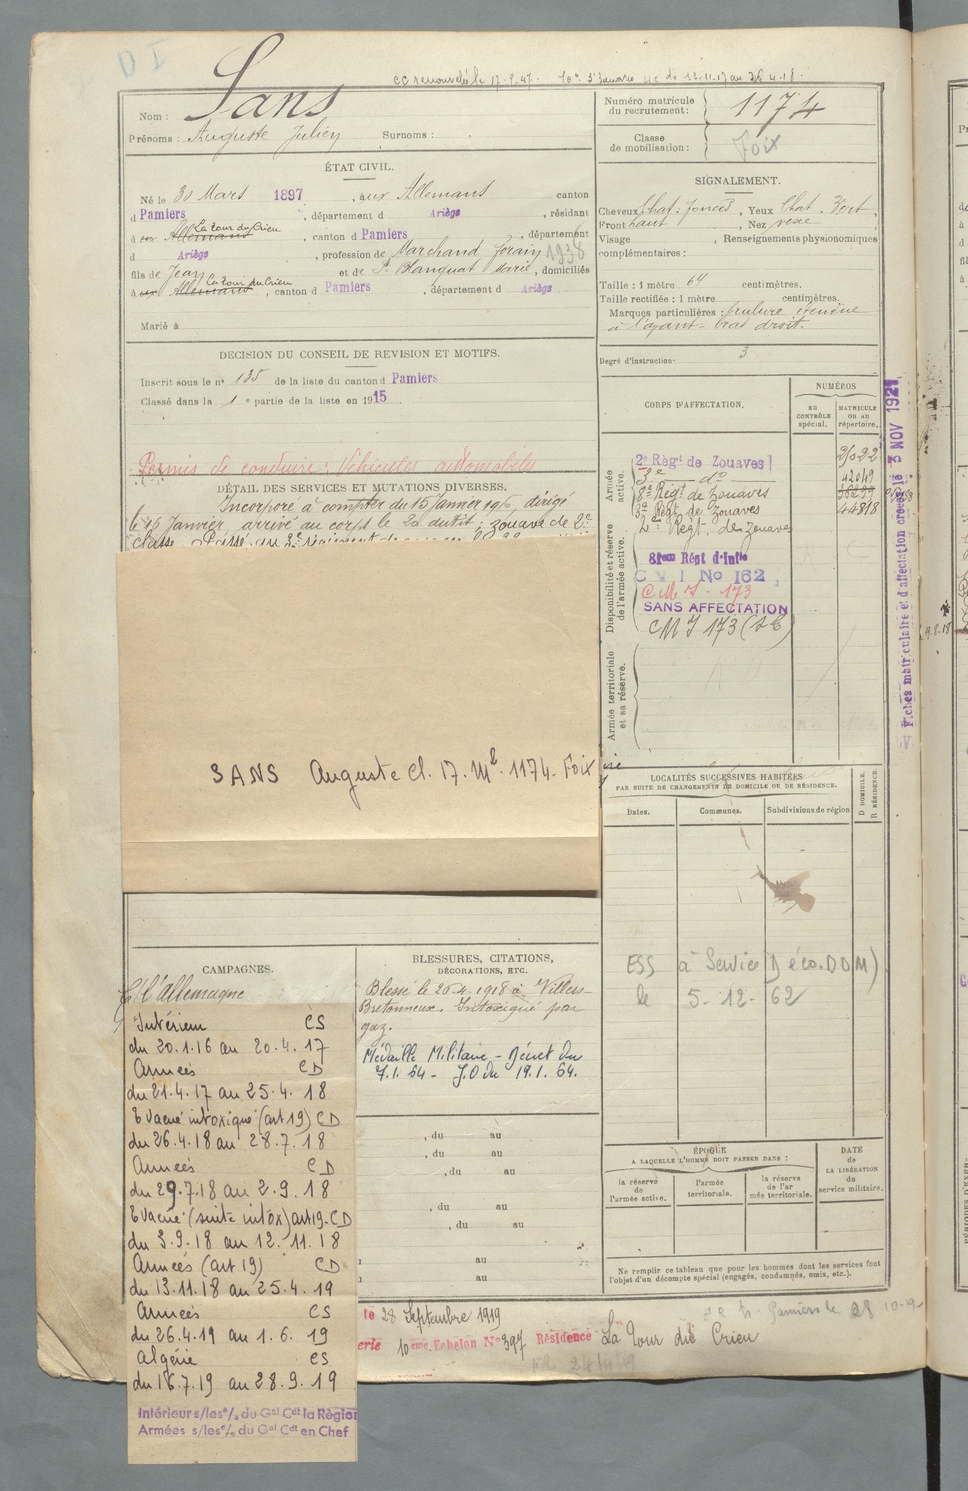 D I
CC renouvelé le 17.2.47.
Nom : Sans
Prénoms : Auguste Julien Surnoms :
Numéro matricule
du recrutement : 1174
Classe
de mobilisation : Foix
ÉTAT CIVIL.
Né le 30 Mars 1897, aux Allemans canton
d Pamiers, département d Ariège, résidant
La tour du Crieu
à aux Allemans, canton d Pamiers, département
d Ariège, profession de Marchand forain 1938
fils de Jean et de St Blanquat Marie, domiciliés
La tour du Crieu
à aux Allemans, canton d Pamiers, département d Ariège
Marié à
SIGNALEMENT.
Cheveux Chat. foncés, Yeux Chat. Vert,
Front haut, Nez vexe,
Visage , Renseignements physionomiques
complémentaires :
Taille : 1 mètre 64 centimètres.
Taille rectifiée : 1 mètre centimètres.
Marques particulières :
bras droit.
Degré d'instruction 3
DECISION DU CONSEIL DE REVISION ET MOTIFS.
Inscrit sous le n° 135 de la liste du canton d Pamiers
Classé dans la 1 e partie de la liste en 1915
Permis de conduire : Véhicules automobiles
DÉTAIL DES SERVICES ET MUTATIONS DIVERSES.
Incorporé à compter du 15 Janvier 1916, dirigé
le 15 Janvier, arrivé au corps le 20 dudit ; zouave de 2e
classe. Passé au 3e régiment de
SANS Auguste Cl. 17. Mle 1174. Foix
CORPS D'AFFECTATION.
NUMÉROS
AU
CONTRÔLE
spécial.
MATRICULE
OU AU
répertoire.
Armée
active.
2e Régt de Zouaves
3e do
8e Régt de Zouaves
3e Régt de Zouaves
2e Régt. de Zouaves
42049
44818
Disponibilité et réserve
de l'armée active.
81eme Régt d'Infie
C M I No 162
C M I - 173
SANS AFFECTATION
CMI 173
Armée territoriale
et sa réserve.
Fiches matriculaire et d'affectation créées le 3 NOV 1921
LOCALITÉS SUCCESSIVES HABITÉES
PAR SUITE DE CHANGEMENTS DE DOMICILE OU DE RÉSIDENCE.
Dates.
Communes.
Subdivisions de région
D DOMICILE.
R RÉSIDENCE.
ESS à Service (Déco. DDM)
le 5-12-62
CAMPAGNES.
C/ l'allemagne
Intérieur CS
du 20.1.16 au 20.4.17
Armées CD
du 21.4.17 au 25.4.18
Evacué intoxiqué (art 19) CD
du 26.4.18 au 28.7.18
Armées CD
du 29.7.18 au 2.9.18
Evacué (suite intox) art 19. CD
du 3.9.18 au 12.11.18
Armées (art 19) CD
du 13.11.18 au 25.4.19
Armées CS
du 26.4.19 au 1.6.19
Algérie CS
du 16.7.19 au 28.9.19
Intérieur s/les °/s du Gal Cdt la Région
Armées s/les °/s du Gal Cdt en Chef
BLESSURES, CITATIONS,
DÉCORATIONS, ETC.
Blessé le 26.4.1918 à Villers-
Bretonneux. Intoxiqué par
gaz.
Médaille Militaire - Décret du
7.1.64 - J.O du 19.1.64.
, du au
, du au
, du au
, du au
, du au
au
au
ÉPOQUE
A LAQUELLE L'HOMME DOIT PASSER DANS :
la réserve
de
l'armée active.
l'armée
territoriale.
la réserve
de l'ar
mée territoriale.
DATE
de
LA LIBÉRATION
du
service militaire.
Ne remplir ce tableau que pour les hommes dont les services font
l'objet d'un décompte spécial (engagés, condamnés, omis, etc.).
le 28 Septembre 1919
10eme Echelon No 397 Résidence La Tour du Crieu